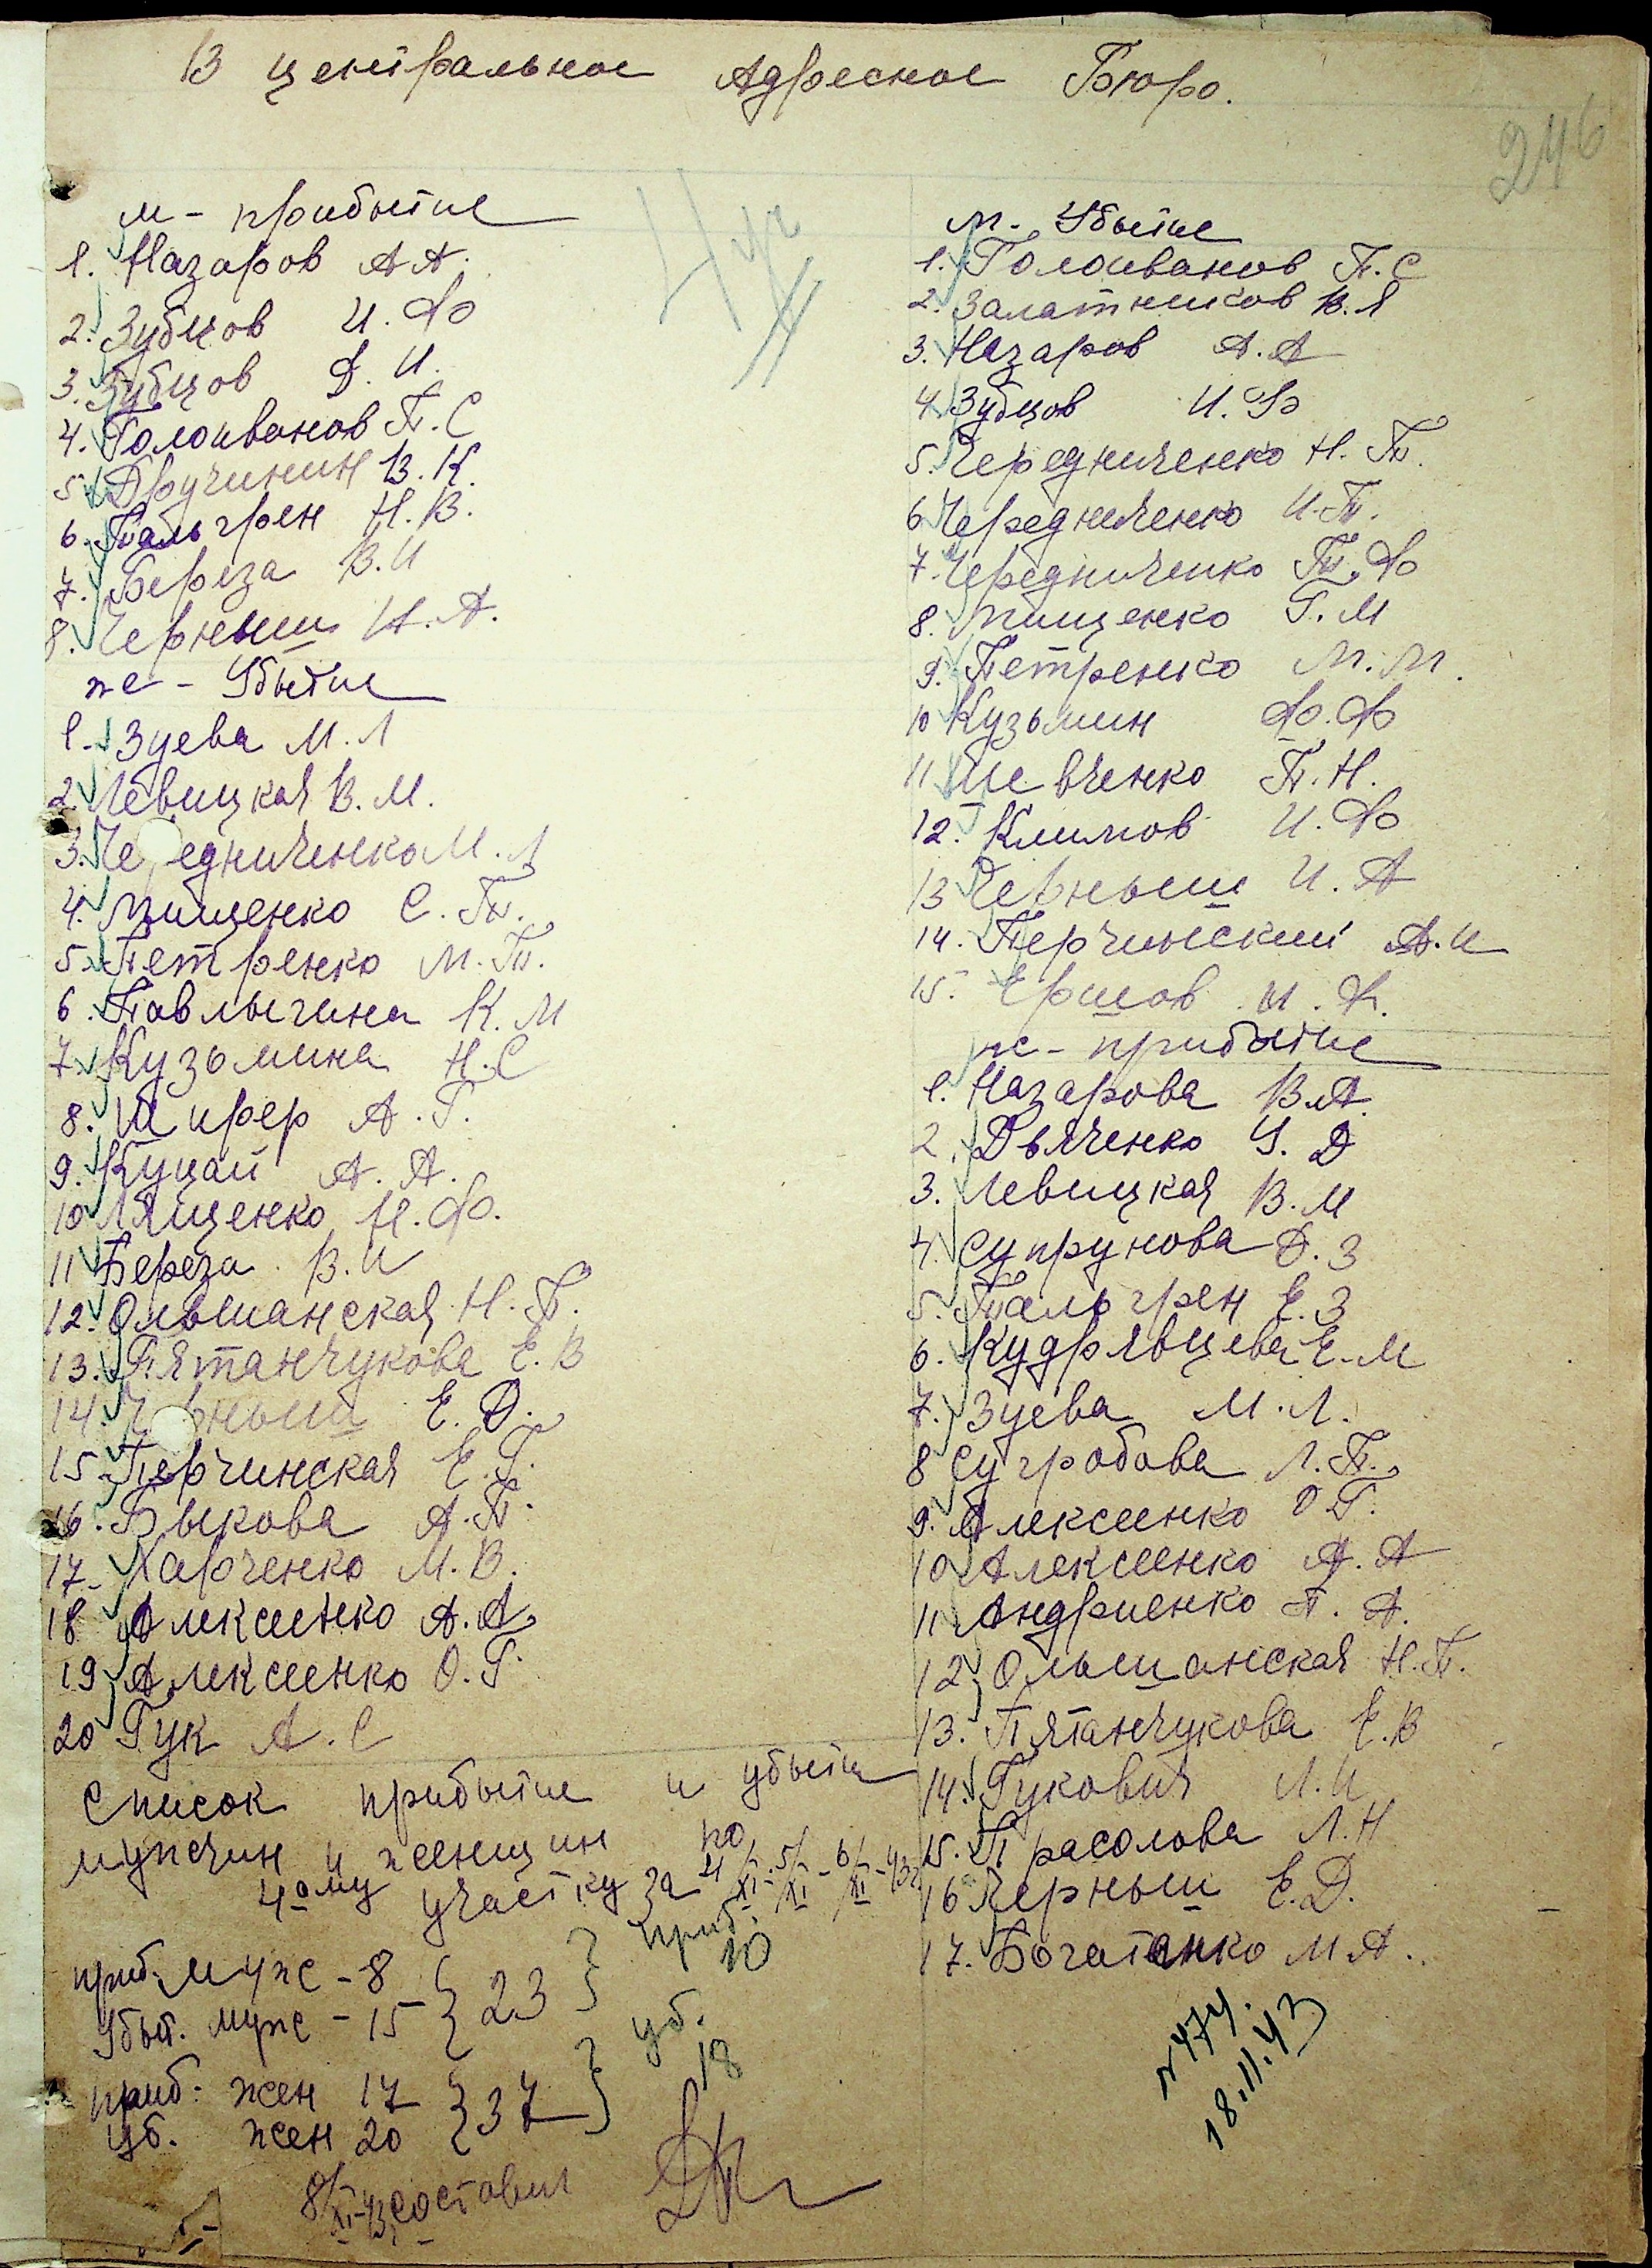 В центральное Адресное Бюро.
246
м - прибытие
1. Назаров А А.
2. Зубцов И. Ф
3. Зубцов Д. И.
4. Голоиванов П. С
5. Дручинин В. К.
6. Пальгрен Н. В.
7. Береза В. И
8. Черныш И. А.
же - Убытие
1. Зуева М. Л
2. Левицкая В. М.
3. Че едниченко М. Л
4. Мищенко С. П.
5. Петренко М. П.
6. Павлычина К. М
7. Кузьмина Н. С
8. Шифер А. Г.
9. Куцай А. А.
10 Лященко Н. Ф.
11 Береза В. И
12. Ольшанская Н. П.
13. Пятанчукова Е. В
14. Ч рныш Е. Д.
15. Перчинская Е. Г.
16. Быкова А. П.
17. Харченко М. В.
18 Алексеенко А. А
19 Алексеенко О. Г.
20 Гук А. С
м. Убытие
1. Голоиванов П. С
2. Залатников В. Я
3. Назаров А. А
4 Зубцов И. Ф
5. Чередниченко Н. П.
6 Чередниченко И. П.
7. Чередниченко П. Ф
8. Мищенко Г. М
9. Петренко М. М.
10 Кузьмин Ф. Ф
11 Шевченко П. Н.
12. Климов И. Ф
13 Черныш И. А
14. Перчинский А. И
15. Ершов И. К.
же - прибытие
1. Назарова В. А.
2. Дьяченко У. Д
3. Левицкая В. М
4. Супрунова Д. З
5. Пальгрен Е. З
6. Кудрявцева Е. М
7. Зуева М. Л.
8 Сугробова Л. П.
9. Алексеенко О Г.
10 Алексеенко А. А
11 Андриенко П. А.
12 Ольшанская Н. П.
13. Пятанчукова Е. В
14. Гукович Л. И
15. Прасолова Л. Н
16 Черныш Е. Д.
17. Богатенко М А.
Список прибытие и убытие
мужчин и женщин по
4ому участку за 4/XI - 5/XI - 6/XI - 43г
приб. муж - 8 } 23
Убыт. муж - 15
приб. жен 17 } 37
уб. жен 20
приб. 10
уб. 18
8/XI-43 составил
№ 474.
18.11.43